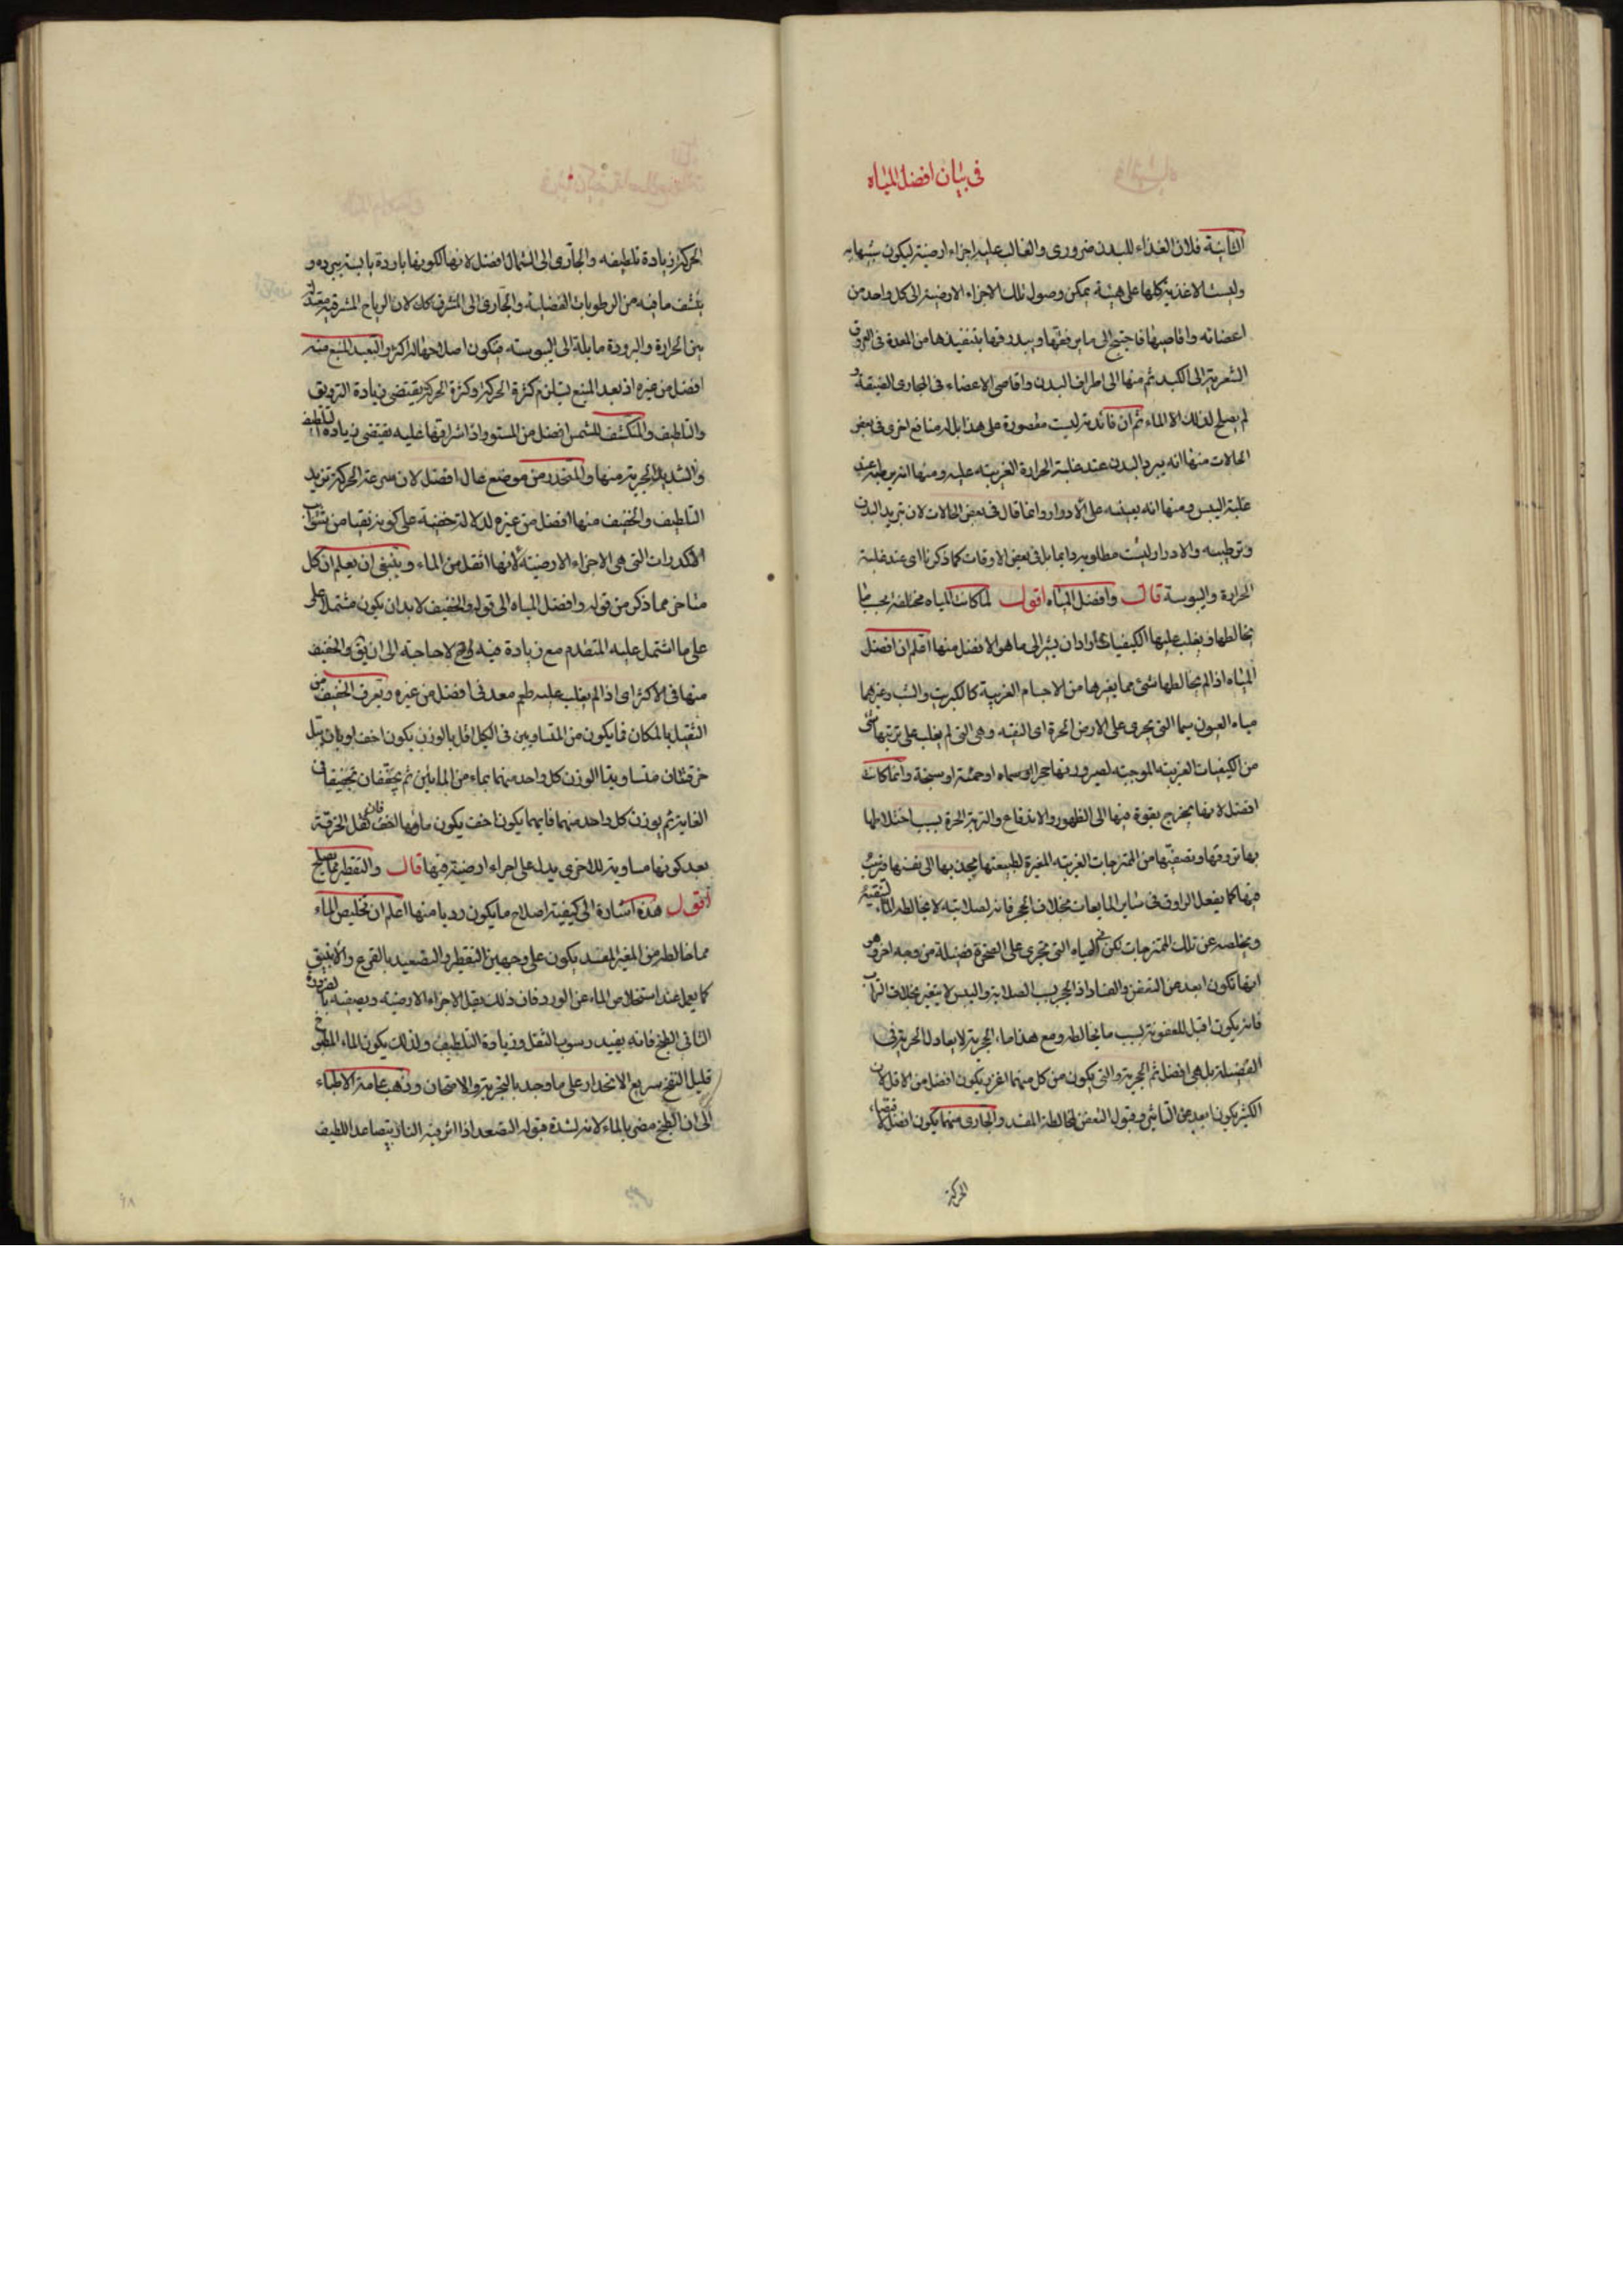 في بيان افضل المياه
الثانية فلان الغذاء للبدن ضروري والغالب عليه اجزاء ارضية ليكون شبيها به
وليست الاغذية كلها على هيئة يمكن وصول تلك الاجزاء الارضية الى كل واحد من
اعضائه واقاصيها فاحتيج الى ما يرققها ويبدرقها بتنفيذها من المعدة في العروق
الشعرية الى الكبد ثم منها الى اطراف البدن واقاصي الاعضاء في المجاري الضيقة و
لم يصلح لذلك الا الماء ثم ان فائدته ليست مقصورة على هذا بل له منافع اخرى في بعض
الحالات منها انه يبرد البدن عند غلبة الحرارة الغريبة عليه ومنها انه يرطبه عند
غلبة اليبس ومنها انه يعينه على الادرار وانما قال في بعض الحالات لان تبريد البدن
وترطيبه والادرار ليست مطلوبة دايما بل في بعض الاوقات كما ذكرنا اي عند غلبة
الحرارة واليبوسة قال وافضل المياه اقول لما كانت المياه مختلفة بحسب ما
يخالطها ويغلب عليها الكيفيات اراد ان يشير الى ما هو الافضل منها اعلم ان افضل
المياه اذا لم يخالطها شئ مما يغيرها من الاجسام الغريبة كالكبريت والشب وغيرهما
مياه العيون سيما التي تجري على الارض الحرة اي النقية وهي التي لم يغلب على تربتها شئ
من الكيفيات الغريبة الموجبة لصيرورتها حجرا او سماه او حمئة او سبخة وانما كانت
افضل لانها يخرج بقوة منها الى الظهور والاندفاع والتربة الحرة بسبب اختلاطها
بها تروقها وتصفيها من الممتزجات الغريبة المغيرة لطبيعتها يجذبها الى نفسها وترسب
فيها كما يفعل الراوق في سائر المايعات بخلاف الحجر فانه لصلابته لا يخالطه الماء لتنقية
ويخلصه عن تلك الممتزجات لكن في المياه التي تجري على الصخرة فضيلة من وجه اخر وهو
انها تكون ابعد عن التعفن والفساد اذ الحجر بسبب الصلابة واليبس لا يتغير بخلاف التراب
فانه يكون اقبل للعفونة بسبب ما يخالطه ومع هذا ماء الحجرية لا يعادل الحرية في
الفضيلة بل هي افضل ثم الحجرية والتي يكون من كل منهما اغزر يكون افضل من الاقل لان
الكثير يكون ابعد عن التاثير وقبول التعفن لمخالطة المفسد والجاري منهما يكون افضل لاقتضاء
الحركة
الحركة زيادة تلطيفه والجاري الى الشمال افضل لانها لكونها باردة يابسة يبرده و
ينشف ما فيه من الرطوبات الفضلية والجاري الى المشرق كك لان الرياح المشرقية معتدلة
بين الحرارة والبرودة مايلة الى اليبوسة فيكون اصلاحها له اكثر والبعيد المنبع منه
افضل من غيره اذ بعد المنبع يستلزم كثرة الحركة وكثرة الحركة يقتضي زيادة الترويق
والتلطيف والمنكشف للشمس افضل من المستور اذ اشراقها عليه يقتضي زيادة التلطيف
والشديد الجرية منها والمنحدر من موضع عال افضل لان سرعة الحركة تزيد
التلطيف والخفيف منها افضل من غيره لدلالة خفته على كونه نقيا من شوائب
الاكدارات التي هي الاجزاء الارضية لانها اثقل من الماء وينبغي ان يعلم ان كل
متاخر مما ذكر من قوله وافضل المياه الى قوله والخفيف لا بد ان يكون مشتملا على
على ما اشتمل عليه المتقدم مع زيادة فيه وح لا حاجة الى ان يق والخفيف
منها في الاكثر اي اذا لم يغلب عليه طعم معدني افضل من غيره ويعرف الخفيف من
الثقيل بالمكيال فما يكون من المتساويين في الكيل اقل بالوزن يكون اخف او بان يبل
خرقتان متساويتا الوزن كل واحد منهما بماء من المائين ثم يجففان تجفيفا في
الغاية ثم يوزن كل واحد منهما فايهما يكون اخف يكون ماؤها اخف فان ثقل الخرقة
بعد كونها مساوية للاخرى يدل على اجزاء ارضية فيها قال والتقطير مما يصلح
اقول هذه اشارة الى كيفية اصلاح ما يكون رديا منها اعلم ان تخليص الماء
مما خالطه من المغير المفسد يكون على وجهين التقطير والتصعيد بالقرع والانبيق
كما يعمل عند استخلاص الماء عن الورد فان ذلك يقل الاجزاء الارضية ويصفيه بالضرورة
الثاني الطبخ فانه يفيد رسوب الثقل وزيادة التلطيف ولذلك يكون الماء المطبوخ
قليل النفخ سريع الانحدار على ما وجد بالتجربة والامتحان وذهب عامة الاطباء
الى ان الطبخ مضر بالماء لانه لشدة قبوله التصعد اذا اثر فيه النار يتصاعد اللطيف